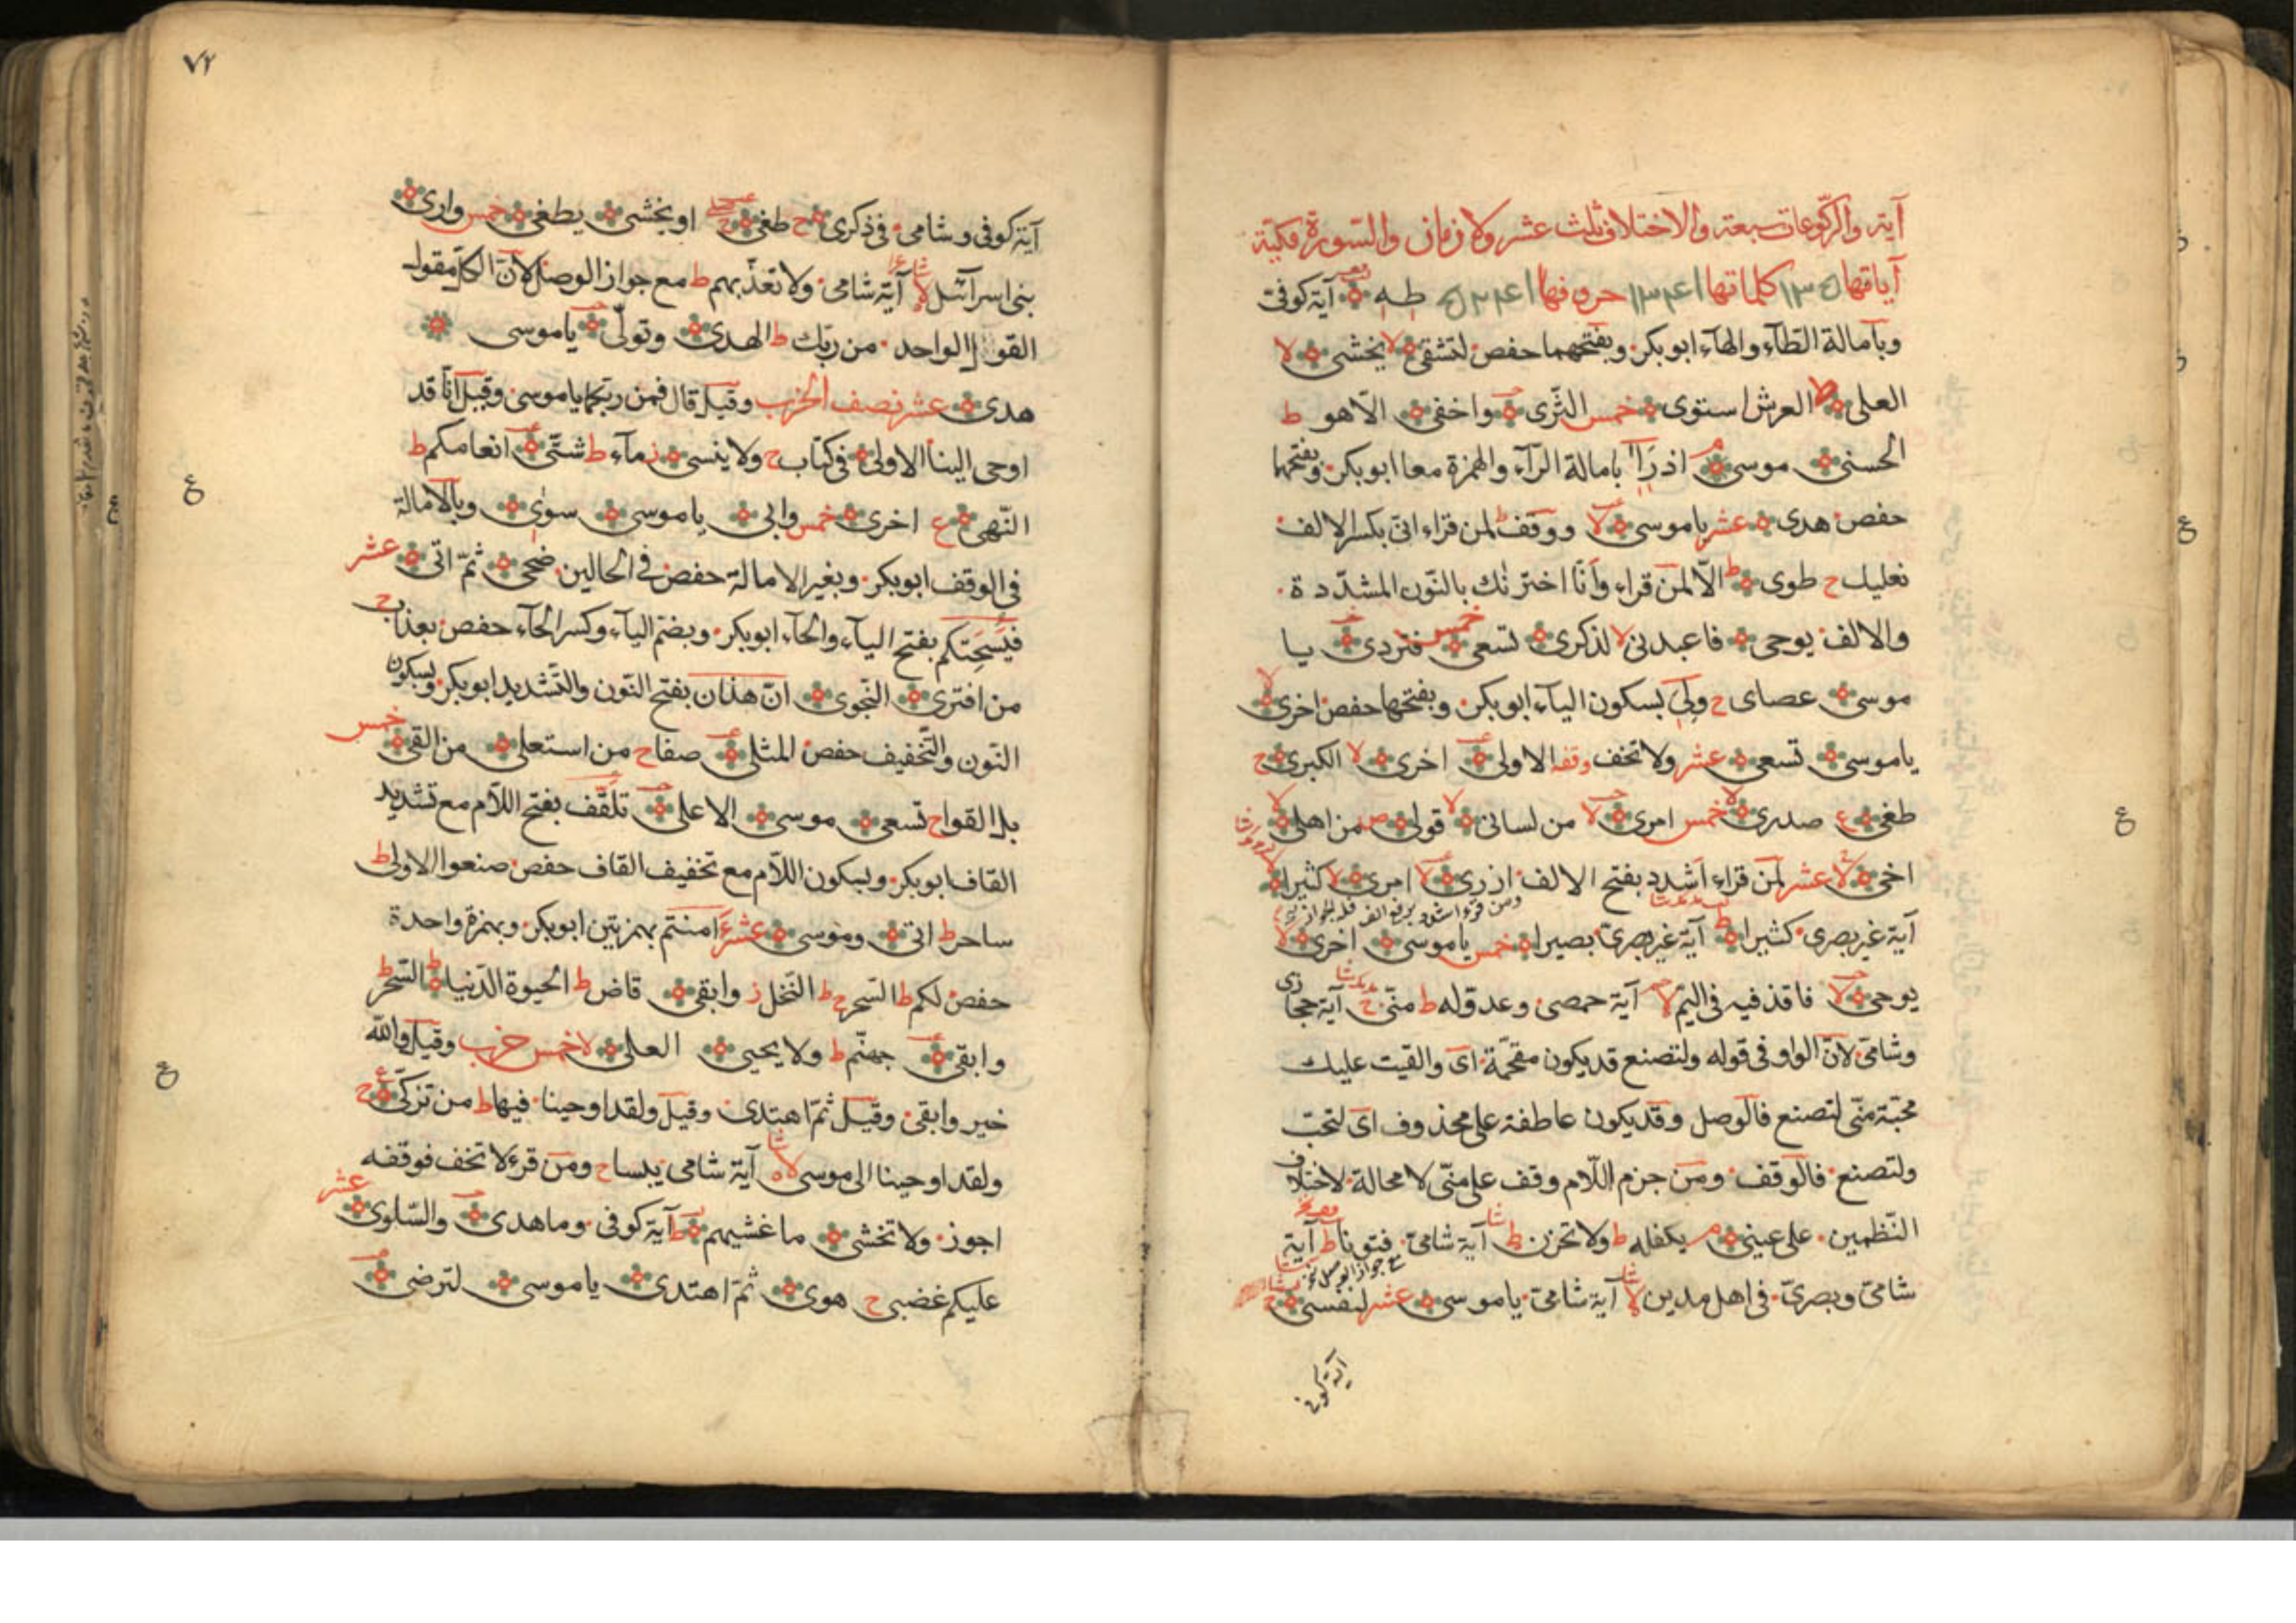 آية والركوعات سبعة والاختلاف ثلث عشر ولا زمان والسورة مكية
آياتها ۱۳۵ كلماتها ۱۳۴۱ حروفها ۵۲۴۱ طه آية كوفى
وبامالة الطآء والهآء ابوبكر وبفتحهما حفص لتشقى لا يخشى لا
العلى ط العرش استوى خمس الثرى واخفى الا هو ط
الحسنى موسى م اذ رآ بامالة الرآء والهمزة معا ابوبكر وبفتحهما
حفص هدى عشر ياموسى لا ووقف لمن قراء انى بكسر الالف
نعليك ح طوى ط الا لمن قراء وانا اخترنك بالنون المشددة
والالف يوحى فاعبدنى لا لذكرى تسعى خمس فتردى يا
موسى عصاى ح ولى بسكون اليآء ابوبكر وبفتحها حفص اخرى لا
ياموسى تسعى عشر ولا تخف وقفه الاولى اخرى لا الكبرى ح
طغى ع صدرى لا خمس امرى لا من لسانى لا قولى ص من اهلى لا
اخى لا عشر لمن قراء اشدد بفتح الالف ازرى لا امرى لا كثيرا لا
ومن قرء اشدد برفع الالف فله الجواز
آية غير بصرى كثيرا ط آية غير بصرى بصيرا خمس ياموسى اخرى لا
يوحى لا فاقذفيه فى اليم لا آية حمصى وعدو له ط منى ح آية حجازى
وشامى لان الواو فى قوله ولتصنع قد يكون مقحمة اى والقيت عليك
محبة منى لتصنع فالوصل وقد يكون عاطفة على محذوف اى لتحب
ولتصنع فالوقف ومن جزم اللام وقف على منى لا محالة لاختلاف
النظمين على عينى م يكفله ط ولا تحزن ط آية شامى فتونا ط آية
شامى وبصرى فى اهل مدين لا آية شامى ياموسى عشر لنفسى ح
آية كوفى
۷۲
آية كوفى وشامى فى ذكرى ح طغى ح او يخشى يطغى خمس وارى
بنى اسرآئيل لا آية شامى ولا تعذبهم ط مع جواز الوصل لان الكل مقول
القول الواحد من ربك ط الهدى وتولى ياموسى
هدى عشر نصف الحزب وقيل قال فمن ربكما ياموسى وقيل انا قد
اوحى الينا الاولى فى كتاب ح ولا ينسى ز مآء ط شتى انعامكم ط
النهى ع اخرى خمس وابى ياموسى سوى وبالامالة
فى الوقف ابوبكر وبغير الامالة حفص فى الحالين ضحى ثم اتى عشر
فيسحتكم بفتح اليآء والحآء ابوبكر وبضم اليآء وكسر الحآء حفص بعذاب ح
من افترى النجوى ان هذان بفتح النون والتشديد ابوبكر وبسكون
النون والتخفيف حفص المثلى صفا ح من استعلى من القى خمس
بل القوا ح تسعى موسى الاعلى تلقف بفتح اللام مع تشديد
القاف ابوبكر وبسكون اللام مع تخفيف القاف حفص صنعوا الاولى ط
ساحر ط اتى وموسى عشر ءامنتم بهمزتين ابوبكر وبهمزة واحدة
حفص لكم ط السحر ح ط النخل ز وابقى قاض ط الحيوة الدنيا ط السحر ط
وابقى جهنم ط ولا يحيى العلى لا خمس حزب وقيل والله
خير وابقى وقيل ثم اهتدى وقيل ولقد اوحينا فيها ط من تزكى ع ح
ولقد اوحينا الى موسى لا آية شامى يبسا ح ومن قرء لا تخف فوقفه
اجوز ولا تخشى ما غشيهم ط آية كوفى وما هدى والسلوى عشر
عليكم غضبى ح هوى ثم اهتدى ياموسى لترضى
ع
ع
ع
ع